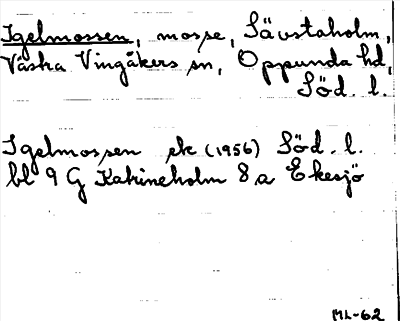 Igelmossen, mosse, Sävstaholm,
Västra Vingåkers sn, Oppunda hd,
Söd. l.
Igelmossen ek (1956) Söd. l.
bl 9 G Katrineholm 8 a Ekesjö
ML-62